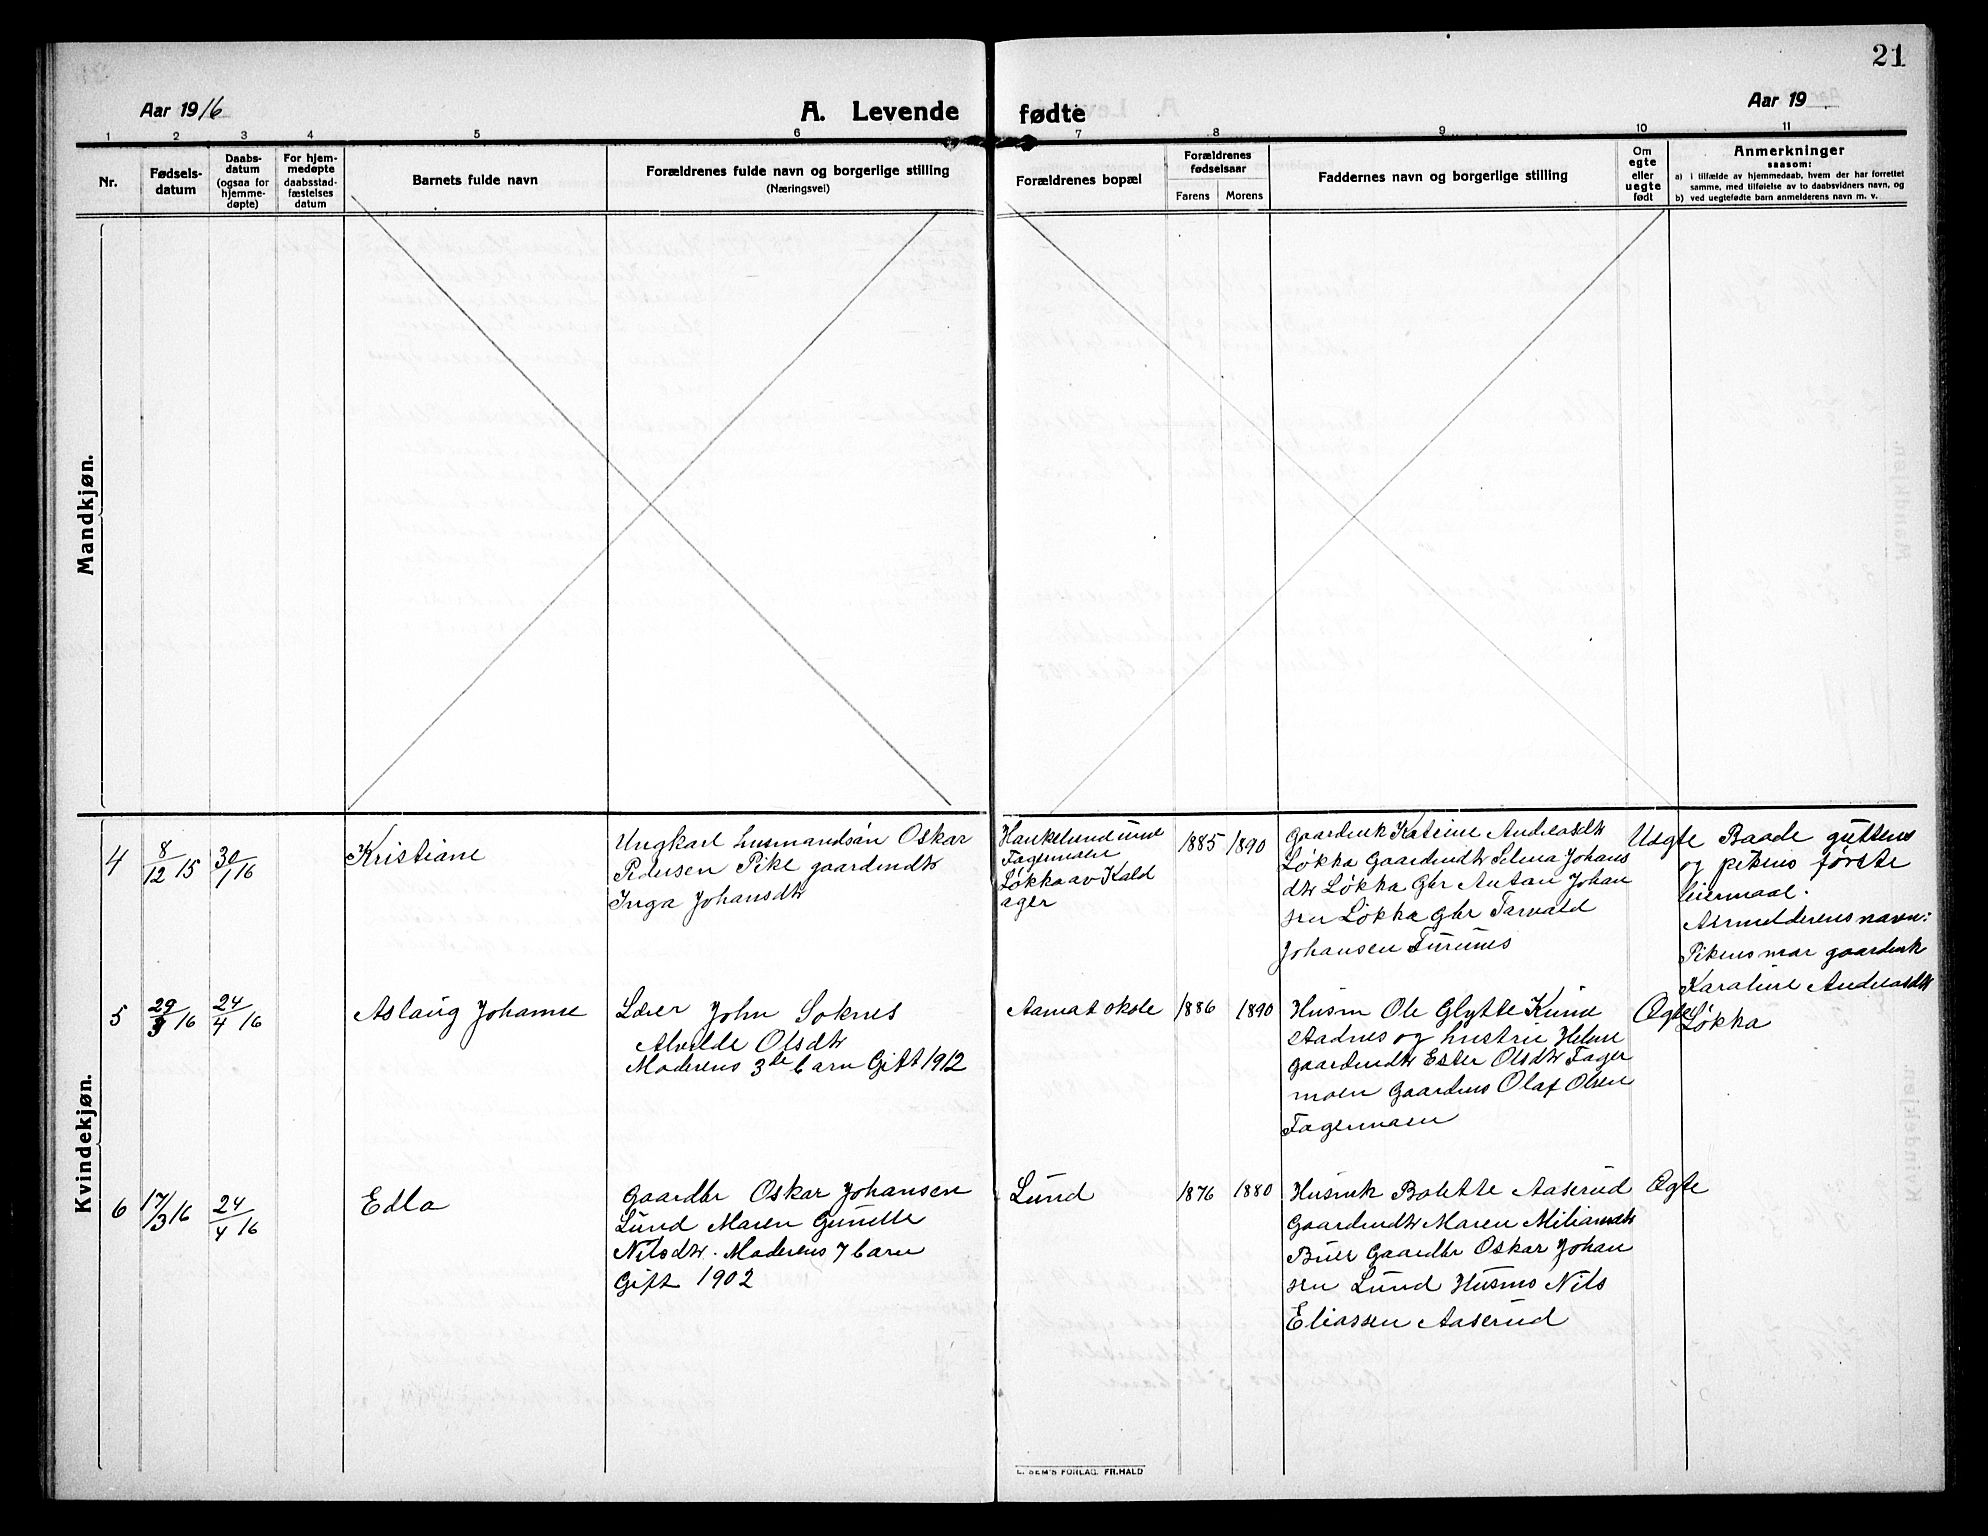 21
Aar 1916
A. Levende fødte
Aar 19
1 2 3 4 5 6 7 8 9 10 11
Nr.
Fødsels-
datum
Daabs-
datum
(ogsaa for
hjemme-
døpte)
For hjem-
medøpte
daabsstad-
fæstelses
datum
Barnets fulde navn
Forældrenes fulde navn og borgerlige stilling
(Næringsvei)
Forældrenes bopæl
Forældrenes
fødselsaar
Farens Morens
Faddernes navn og borgerlige stilling
Om
egte
eller
uegte
født
Anmerkninger
saasom:
a) i tilfælde av hjemmedaab, hvem der har forrettet
samme, med tilføielse av to daabsvidners navn, og
b) ved uegtefødte barn anmelderens navn m. v.
Mandkjøn.
Kvindekjøn.
4
8/12 15
30/1 16
Kristiane
Ungkarl husmandsøn Oskar
Pedersen Pike gaardmdtr
Inga Johansdtr
Hankelund
Fagermoen
Løkka av Kald
ager
1885
1890
Gaardmk Katrine Andreasdtr
Løkka Gaardmdtr Selma Johans
dtr Løkka Gbr Anton Johan
sen Løkka Gbr Torvald
Johansen Furunes
Uegte
Baade guttens
og pikens første
leiermaal.
Anmelderens navn:
Pikens mor gaardmk
Karoline Andreasdtr
Løkka
5
29/3 16
24/4 16
Aslaug Johanne
Lærer John Soknes
Alvilde Olsdtr
Moderens 3de barn Gift 1912
Aamot skole
1886
1890
Husm Ole Glytte
og hustru Helene
gaardmdtr Ester Olsdtr Fager
moen Gaardms Olaf Olsen
Fagermoen
Ægte
6
17/3 16
24/4 16
Edla
Gaardbr Oskar Johansen
Lund Maren Gunelle
Nilsdtr. Moderens 7 barn
Gift 1902
Lund
1876
1880
Husmk Bolette Aaserud
Gaardmdtr Maren
Gaardbr Oskar Johan
sen Lund Husms Nils
Eliassen Aaserud
Ægte
E. SEM'S FORLAG. FR.HALD